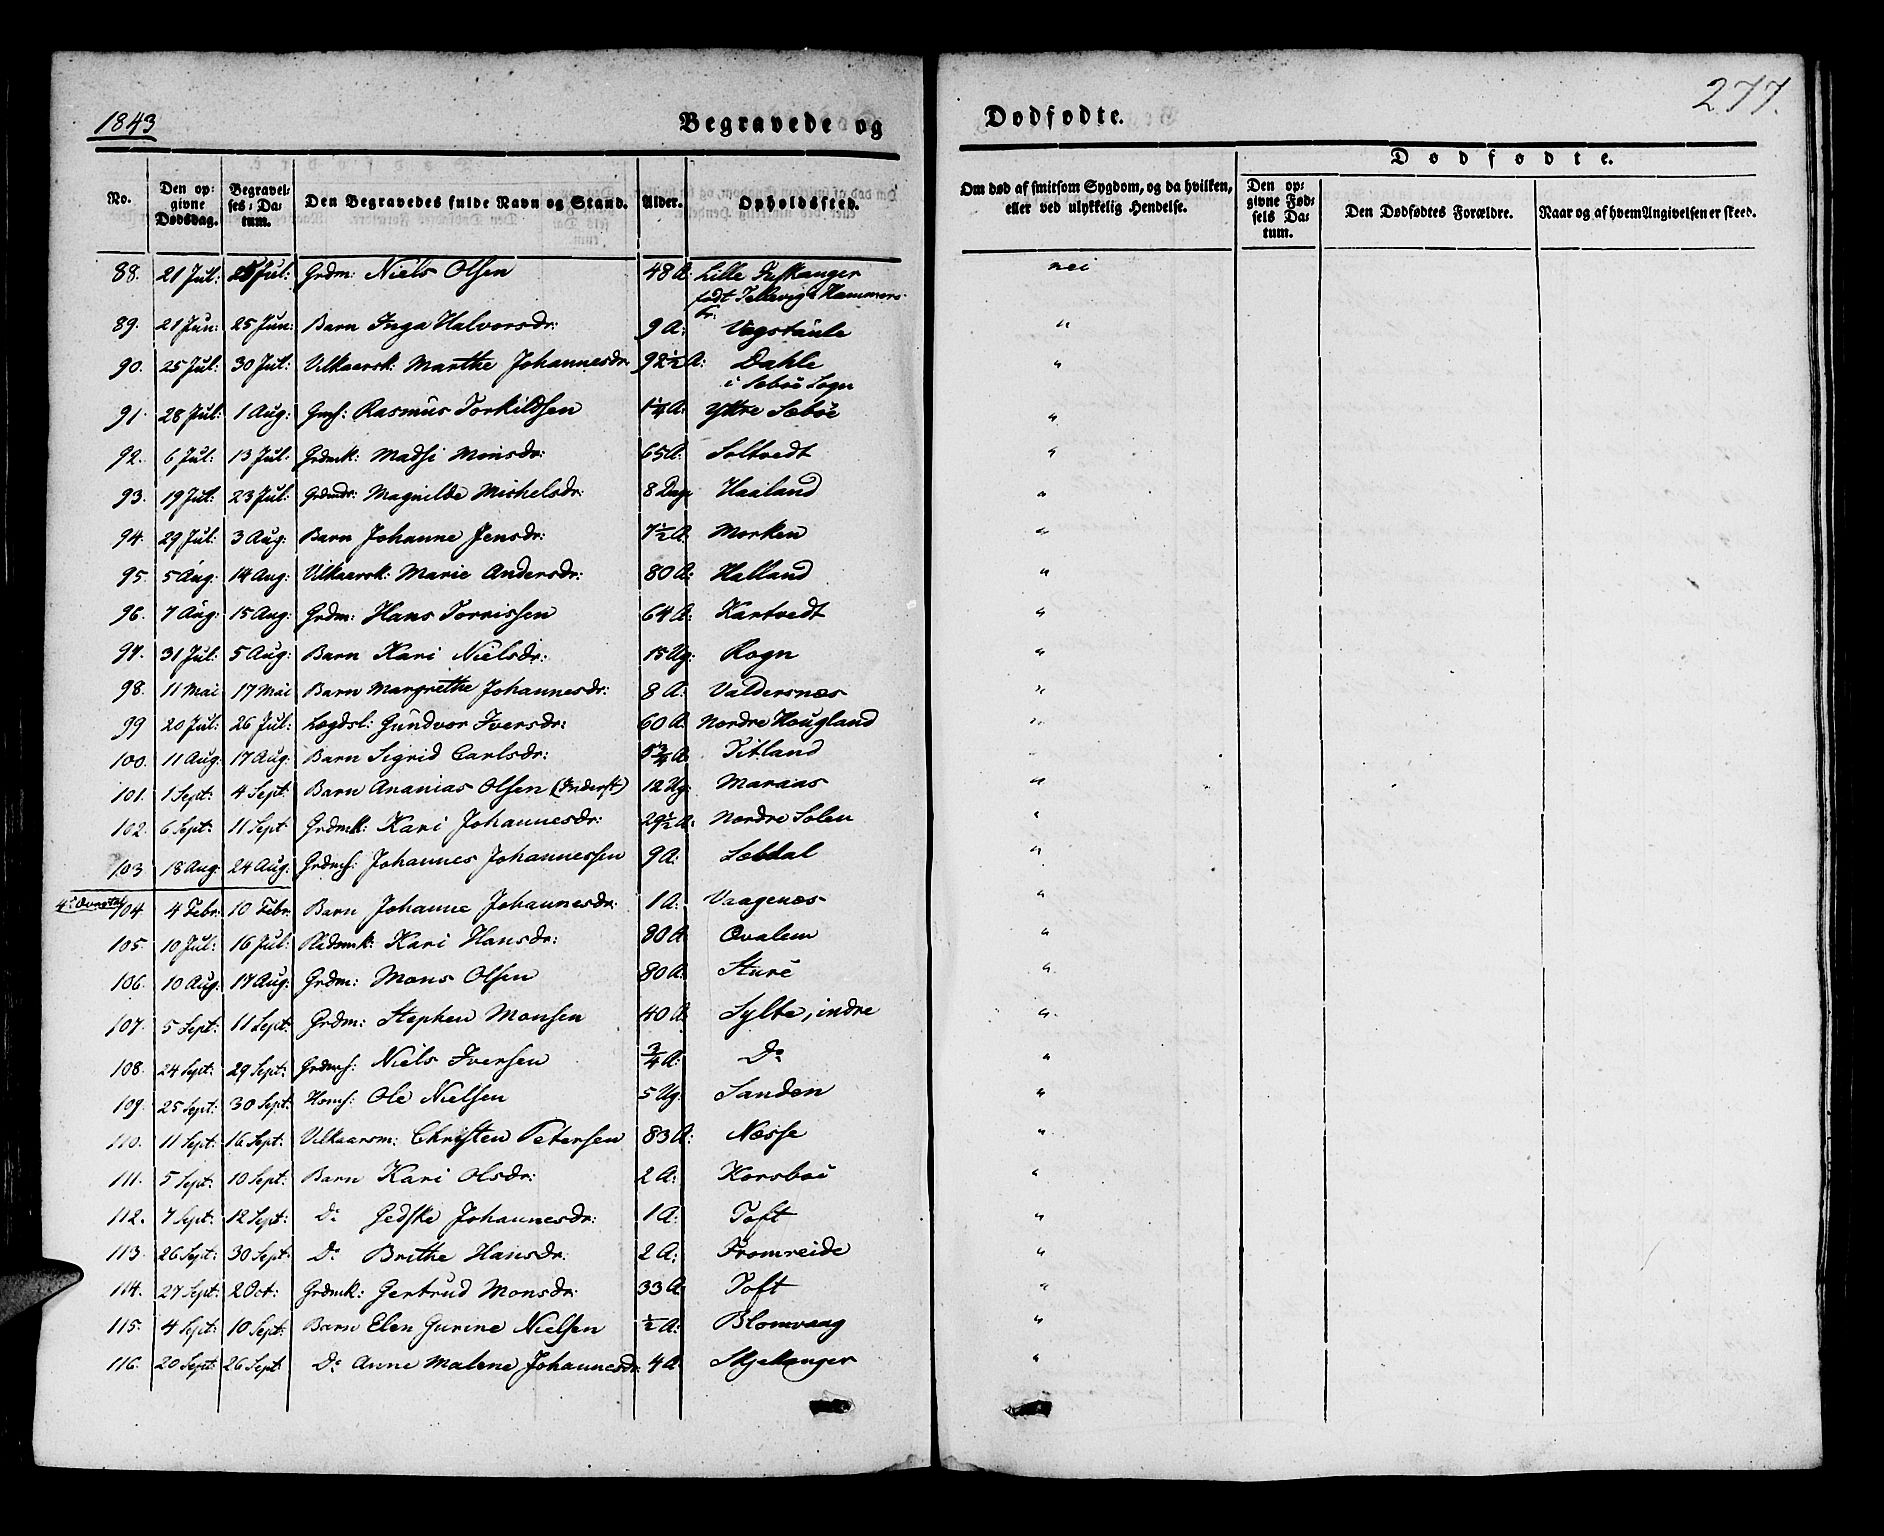 1843
Begravede og
Dødfødte.
277.
No.
Den opgivne Dødsdag.
Begravelses-Datum.
Den Begravedes fulde Navn og Stand.
Alder.
Opholdssted.
Om død af smitsom Sygdom, og da hvilken, eller ved ulykkelig Hendelse.
Dødfødte.
Den opgivne Fødsels Datum.
Den Dødfødtes Forældre.
Naar og af hvem Angivelsen er skeed.
88. 21 Jul: Jul: Grdm: Niels Olsen 48 A: Lille nei
født i Hammers
89. 21 Jun: 25 Jun: Barn Inga Halvorsdr: 9 A: Vagstaule "
90. 25 Jul: 30 Jul: Vilkaarsk: Marthe Johannesdr: 92½ A: Dahle "
i Sebøe Sogn
91. 28 Jul: 1 Aug: Gms: Rasmus Torkildsen 1¼ A: Yttre Sæbøe "
92. 6 Jul: 13 Jul: Grdmk: Madsi Monsdr: 65 A: Soltvedt "
93. 19 Jul: 23 Jul: Grdmdr: Magnilde Michelsdr: 8 Dag Haaland "
94. 29 Jul: 3 Aug: Barn Johanne Jensdr: 7½ A Morken "
95. 5 Aug: 14 Aug: Vilkaarsk: Marie Andersdr: 80 A: Halland "
96. 7 Aug: 15 Aug: Grdm: Hans Torrissen 64 A: Kartvedt "
97. 31 Jul: 5 Aug: Barn Kari Nielsdr: 15 Ug: Rogn "
98. 11 Mai 17 Mai Barn Margrethe Johannesdr: 8 A: Valdersnæs "
99 20 Jul: 26 Jul: Lægdsl: Gundvor Iversdr: 60 A Nordre Hougland "
100. 11 Aug: 17 Aug: Barn Sigrid Carlsdr: A Titland "
101. 1 Sept: 4 Sept: Barn Ananias Olsen (Inderst) 12 Ug: Maraas "
102. 6 Sept: 11 Sept Grdmk: Kari Johannesdr: 29½ A: Nordre Solen "
103 18 Aug 24 Aug: Grdms: Johannes Johannessen 9 A: Læbdal "
104. 4 Febr: 10 Febr. Barn Johanne Johannesdr: 1 A: Vaagenæs "
105. 10 Jul: 16 Jul: Kari Hansdr: 80 A Ovalem "
106. 10 Aug: 17 Aug: Grdm: Mons Olsen 80 A: Sture "
107. 5 Sept: 11 Sept: Grdm: Stephen Monsen 40 A: Sylte, indre "
108. 24 Sept: 29 Sept: Grdms: Niels Iversen ¾ A: Do "
109. 25 Sept: 30 Sept: Homs: Ole Nielsen 5 Ug Sanden "
110. 11 Sept: 16 Sept: Vilkaarsm: Christen Petersen 83 A: Næsse "
111. 5 Sept: 10 Sept: Barn Kari Olsdr: 2 A: Korsbøe "
112. 7 Sept: 12 Sept: Do Gedske Johannesdr: 1 A: Toft "
113. 26 Sept: 30 Sept: Do Brithe Hansdr: 2 A: Fromreide "
114. 27 Sept: 2 Oct: Grdmk: Gertrud Monsdr: 33 A Toft "
115. 4 Sept: 10 Sept: Barn Elen Gurine Nielsen ½ A: Blomvaag "
116. 20 Sept: 26 Sept Do Anne Malene Johannesdr: 4 A Skjellanger "